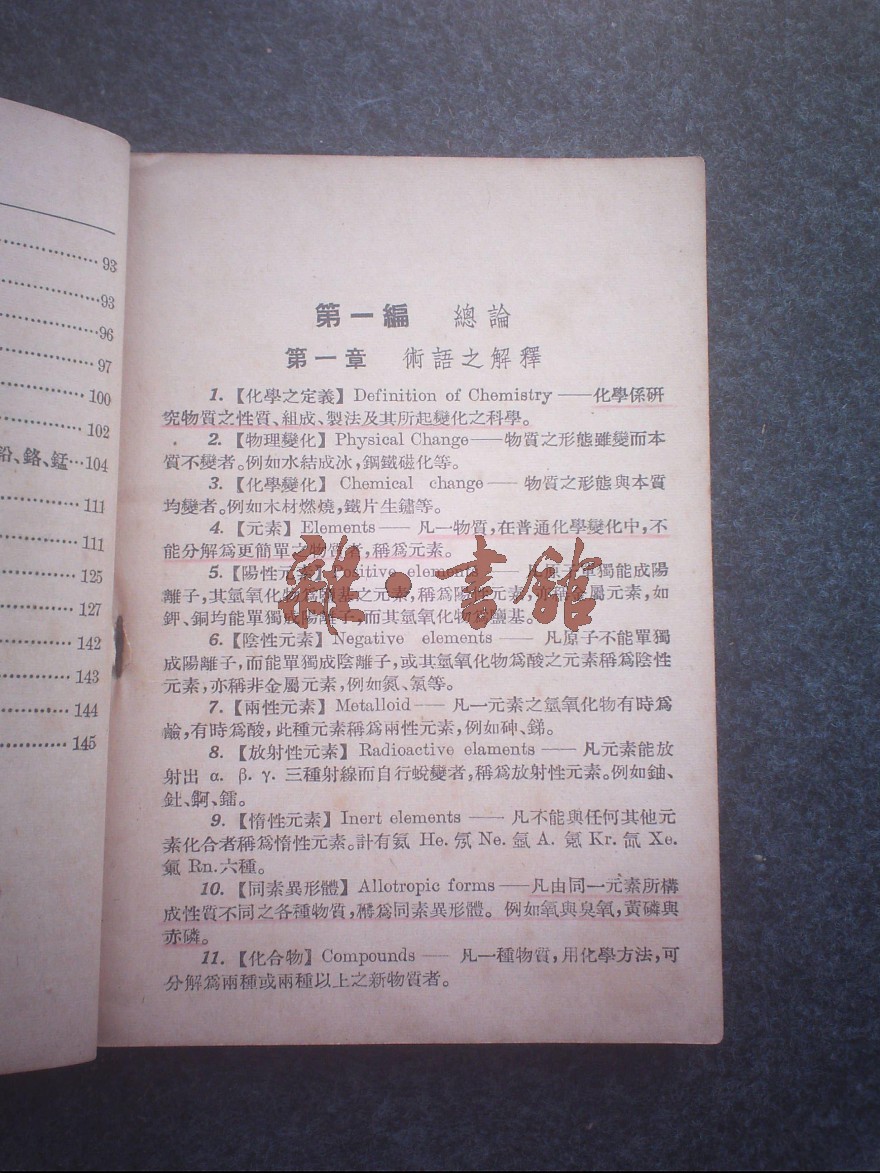 93
93
96
97
100
102
鉛、鉻、錳…104
111
111
125
127
142
143
144
145
第一編 總論
第一章 術語之解釋
1.【化學之定義】Definition of Chemistry——化學係研
究物質之性質、組成、製法及其所起變化之科學。
2.【物理變化】Physical Change——物質之形態雖變而本
質不變者。例如水結成冰,鋼鐵磁化等。
3.【化學變化】Chemical change——物質之形態與本質
均變者。例如木材燃燒,鐵片生鏽等。
4.【元素】Elements——凡一物質,在普通化學變化中,不
能分解爲更簡單之物質者,稱爲元素。
5.【陽性元素】Positive elements——凡原子單獨能成陽
離子,其氫氧化物爲鹽基之元素,稱爲陽性元素,亦稱金屬元素,如
鉀、銅均能單獨成陽離子,而其氫氧化物爲鹽基。
6.【陰性元素】Negative elements——凡原子不能單獨
成陽離子,而能單獨成陰離子,或其氫氧化物爲酸之元素稱爲陰性
元素,亦稱非金屬元素,例如氮、氯等。
7.【兩性元素】Metalloid——凡一元素之氫氧化物有時爲
鹼,有時爲酸,此種元素稱爲兩性元素,例如砷、銻。
8.【放射性元素】Radioactive elaments——凡元素能放
射出 α. β. γ. 三種射線而自行蛻變者,稱爲放射性元素。例如鈾、
釷、錒、鐳。
9.【惰性元素】Inert elements——凡不能與任何其他元
素化合者稱爲惰性元素。計有氦 He. 氖 Ne. 氬 A. 氪 Kr. 氙 Xe.
氡 Rn. 六種。
10.【同素異形體】Allotropic forms——凡由同一元素所構
成性質不同之各種物質,稱爲同素異形體。例如氧與臭氧,黃磷與
赤磷。
11.【化合物】Compounds——凡一種物質,用化學方法,可
分解爲兩種或兩種以上之新物質者。
雜·書館